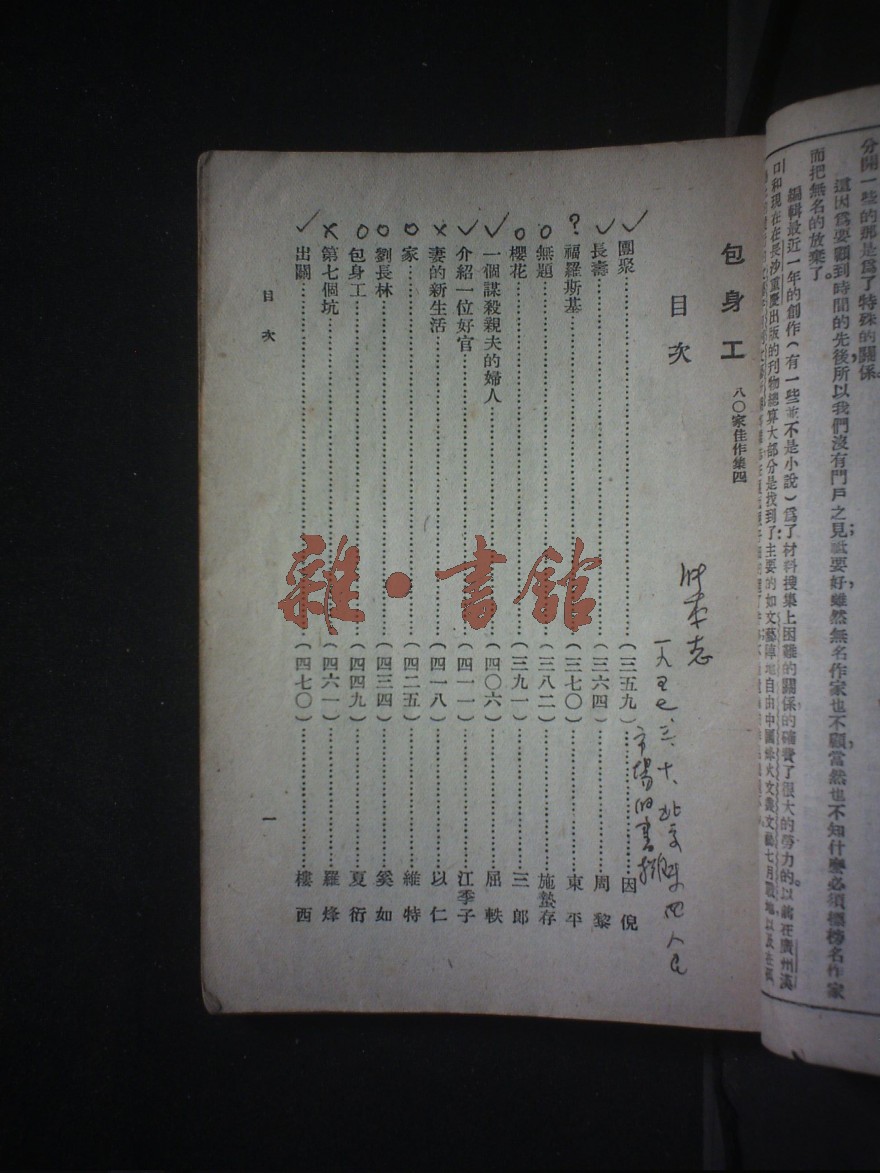 分開一些的那是爲了特殊的關係。
這因爲要顧到時間的先後所以我們沒有門戶之見祇要好雖然無名作家也不顧當然也不知什麼必須標榜名作家
而把無名的放棄了。
編輯最近一年的創作(有一些並不是小說)爲了材料搜集上困難的關係的確費了很大的勞力的以前在廣州漢
口和現在在長沙重慶出版的刊物總算大部分是找到了主要的如文藝陣地自由中國烽火文叢文藝七月戰地以及在
包身工 八〇家佳作集四
目次
一九五七、三、十、北京
市場的書攤
✓團聚(三五九)因倪
✓長壽(三六四)周黎
?福羅斯基(三七〇)東平
○無題(三八二)施蟄存
○櫻花(三九一)三郎
✓一個謀殺親夫的婦人(四〇六)屈軼
✓介紹一位好官(四一一)江季子
×妻的新生活(四一八)以仁
○家(四二五)維特
○劉長林(四三四)奚如
○包身工(四四九)夏衍
×第七個坑(四六一)羅烽
✓出關(四七〇)樓西
目次 一
雜·書館